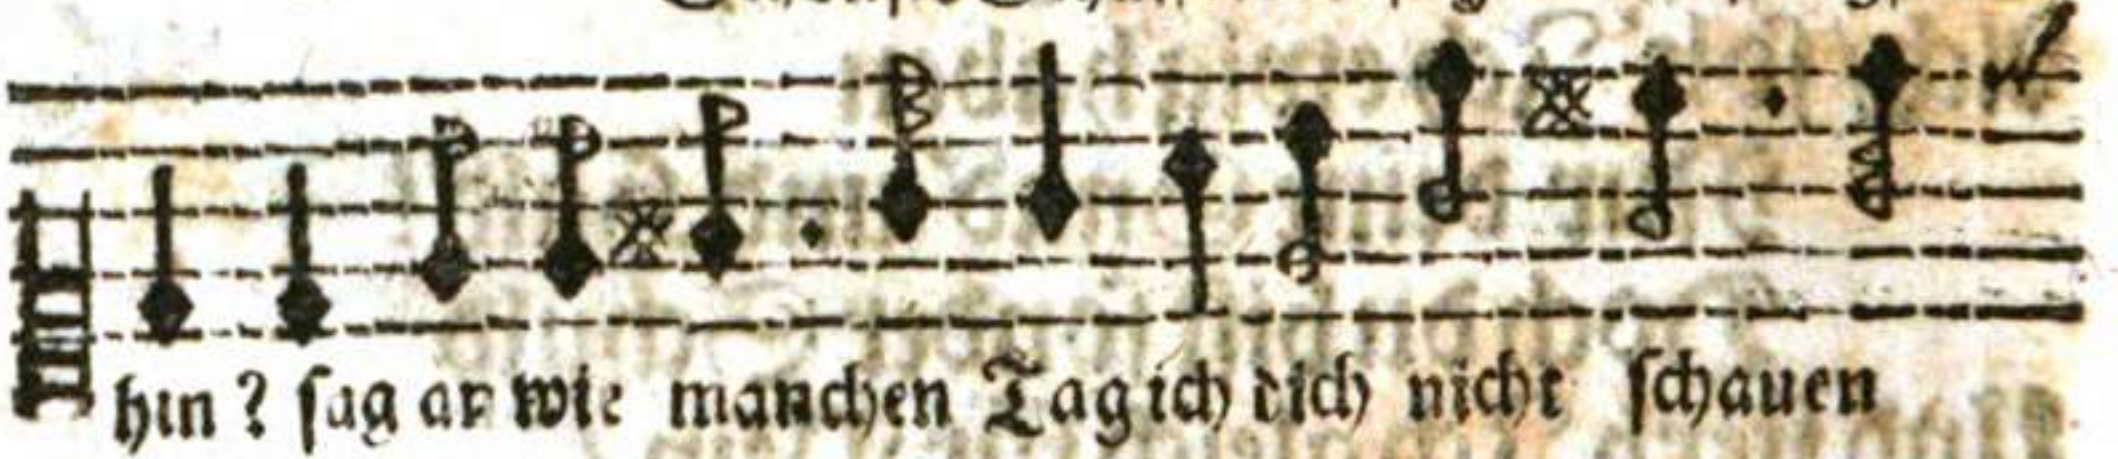 hin? ſag an wie manchen Tag ich dich nicht ſchauen